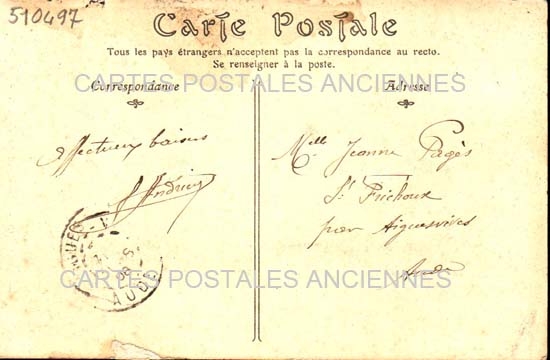 510497
Carte Postale
Tous les pays étrangers n'acceptent pas la correspondance au recto.
Se renseigner à la poste.
CARTES POSTALES ANCIENNES
Correspondance
Adresse
affectueux baisers
Melle Jeanne Pagès
St Frichoux
par Aiguesvives
Aude
CARTES POSTALES ANCIENNES
AUDE